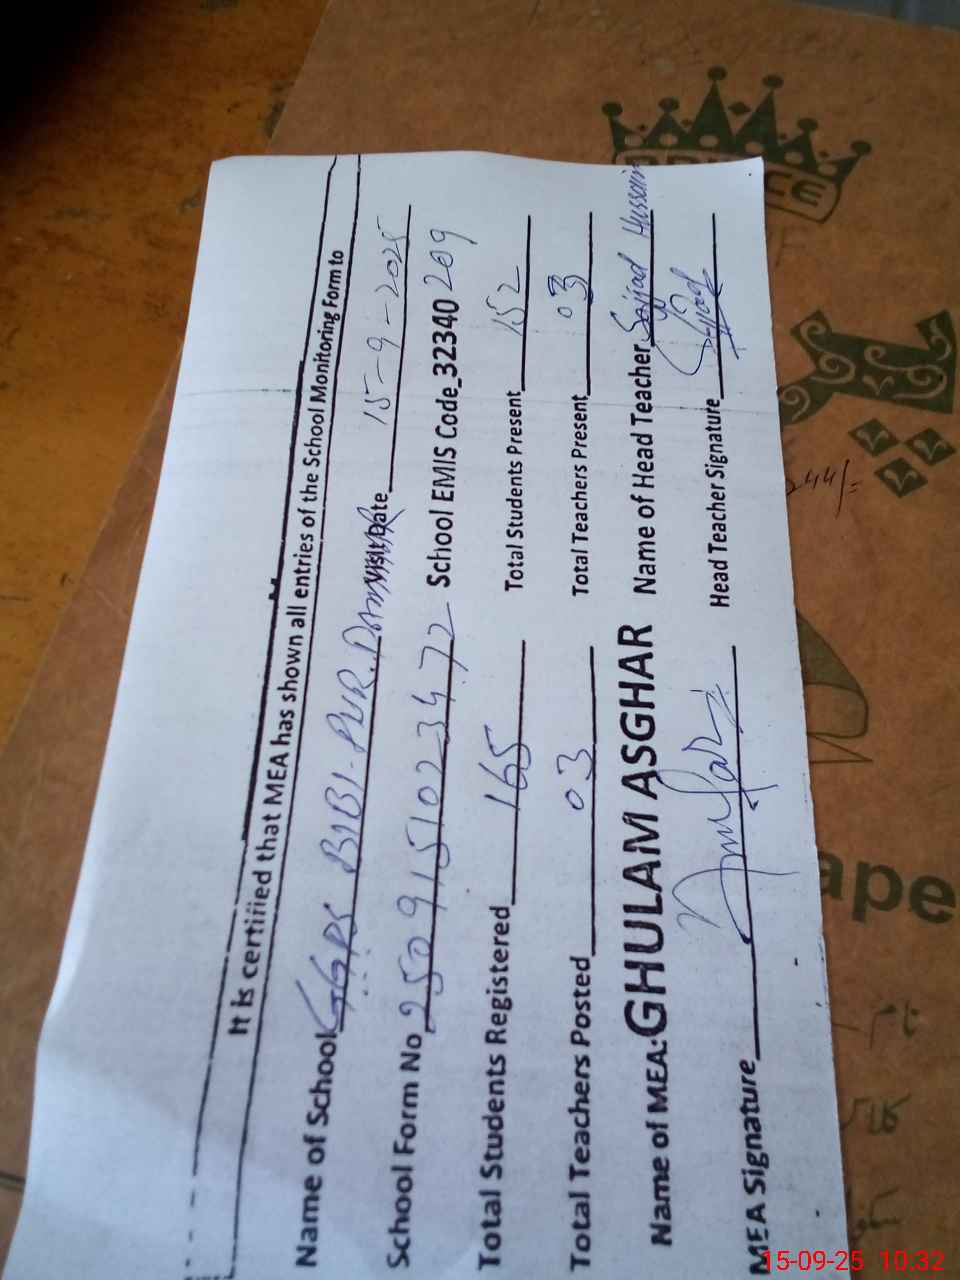 It is certified that MEA has shown all entries of the School Monitoring Form to
Name of School GGPS BIBI-PUR. Visit Date 15-9-2025
School Form No 2509151023472 School EMIS Code_32340209
Total Students Registered 165 Total Students Present 152
Total Teachers Posted 03 Total Teachers Present 03
Name of MEA: GHULAM ASGHAR Name of Head Teacher Sajjad Hussain
MEA Signature Head Teacher Signature Sajjad
244/=
ape
15-09-25 10:32